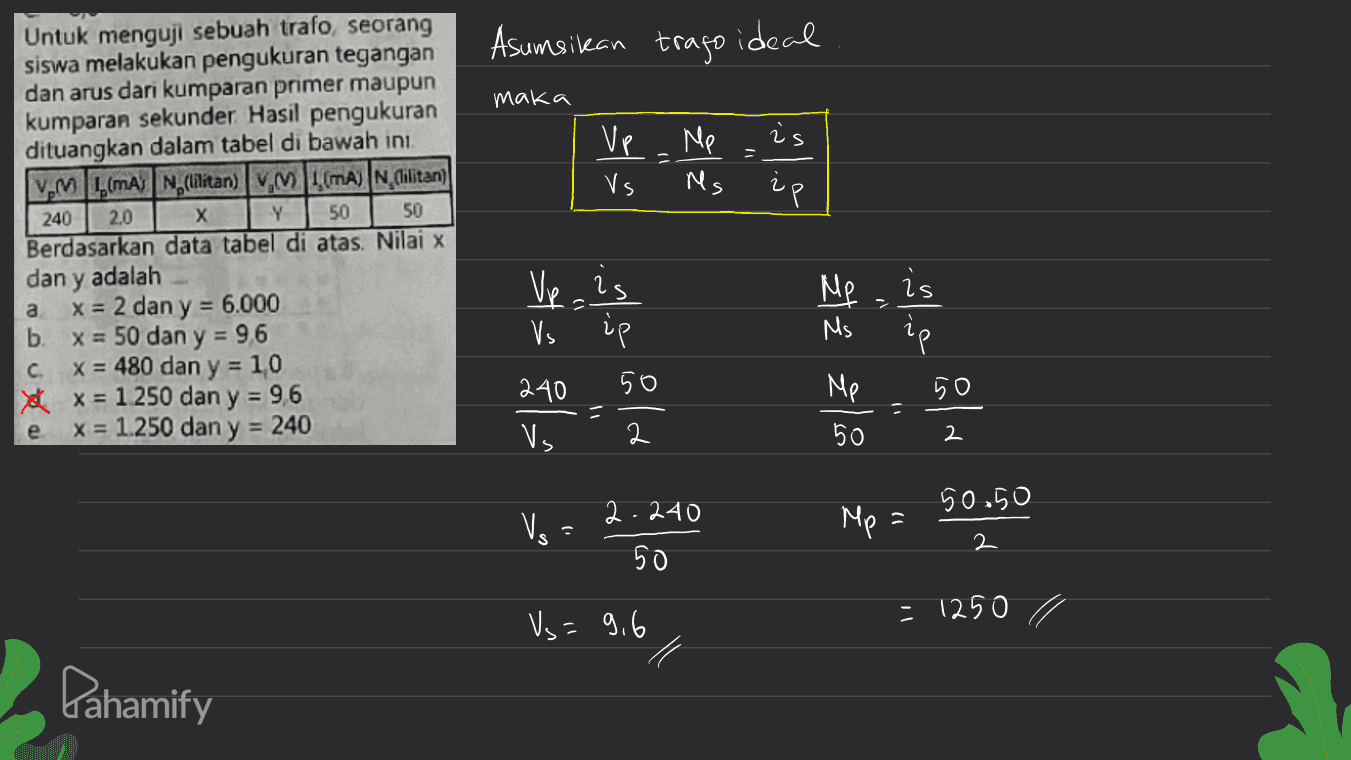 Untuk menguji sebuah trafo, seorang
siswa melakukan pengukuran tegangan
dan arus dari kumparan primer maupun
kumparan sekunder. Hasil pengukuran
dituangkan dalam tabel di bawah ini.
Vₚ(V) Iₚ(mA) Nₚ(lilitan) Vₛ(V) Iₛ(mA) Nₛ(lilitan)
240 2,0 X Y 50 50
Berdasarkan data tabel di atas. Nilai x
dan y adalah
a. x = 2 dan y = 6.000
b. x = 50 dan y = 9,6
c. x = 480 dan y = 1,0
d. x = 1.250 dan y = 9,6
e. x = 1.250 dan y = 240
Asumsikan trafo ideal.
maka
Vp/Vs = Np/Ns = is/ip
Vp/Vs = is/ip
240/Vs = 50/2
Vs = 2.240/50
Vs = 9,6
Np/Ns = is/ip
Np/50 = 50/2
Np = 50.50/2
= 1250
Pahamify